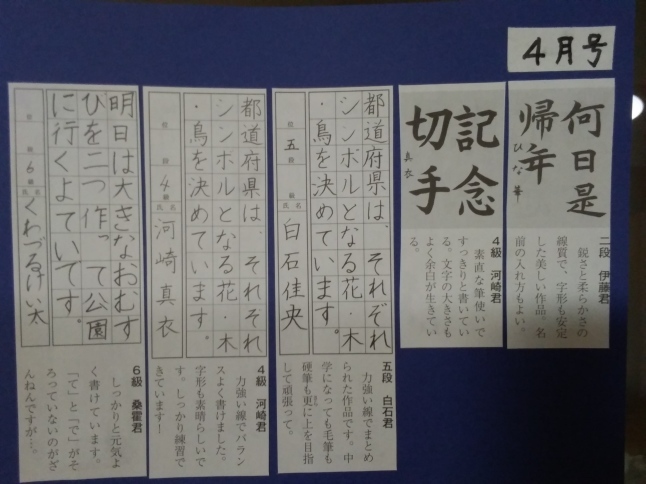 4月号
何日是
帰年
ひな華
二段 伊藤君
鋭さと柔らかさの
線質で、字形も安定
した美しい作品。名
前の入れ方もよい。
記念
切手
真衣
4級 河崎君
素直な筆使いで
すっきりと書いてい
る。文字の大きさも
よく余白が生きてい
る。
都道府県は、それぞれ
シンボルとなる花・木
・鳥を決めています。
五
段
級
氏名
白石佳央
五段 白石君
力強い線でまとめ
られた作品です。中
学になっても毛筆も
硬筆も更に上を目指
して頑張って。
都道府県は、それぞれ
シンボルとなる花・木
・鳥を決めています。
段
4級
氏名
河崎真衣
4級 河崎君
力強い線でバラン
スよく書けました。
字形も素晴らしいで
す。しっかり練習で
きています！
明日は大きなおむす
ひを二つ作って公園
に行くよていです。
段
6級
氏名
くわづるけい太
6級 桑霍君
しっかりと元気よ
く書けています。
「て」と「で」がそ
ろっていないのがざ
んねんですが…。